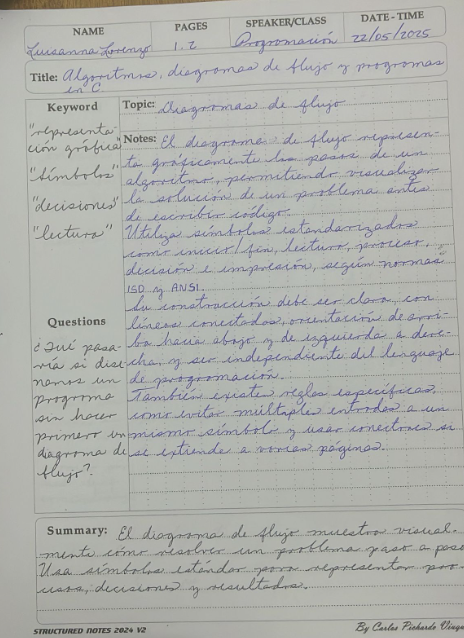 NAME PAGES SPEAKER/CLASS DATE - TIME
Luisanna Lorenzo 1.2 Programación 22/05/2025
Title: Algoritmos, diagramas de flujo y programas
en C
Keyword
"representa-
ción gráfica"
"símbolos"
"decisiones"
"lectura"
Questions
¿Qué pasa-
ría si dise
ñamos un
programa
sin hacer
primero un
diagrama de
flujo?
Topic: Diagramas de flujo
Notes: El diagrama de flujo represen-
ta gráficamente los pasos de un
algoritmo, permitiendo visualizar
la solución de un problema antes
de escribir código.
Utiliza símbolos estandarizados
como inicio/fin, lectura, proceso,
decisión e impresión, según normas
ISO y ANSI.
Su construcción debe ser clara, con
líneas conectadas, orientación de arri-
ba hacia abajo y de izquierda a dere-
cha, y ser independiente del lenguaje
de programación.
También existe reglas específicas
como evitar múltiples entradas a un
mismo símbolo y usar conectores si
se extiende a varias páginas.
Summary: El diagrama de flujo muestra visual-
mente cómo resolver un problema paso a paso
Usa símbolos estándar para representar pro-
cesos, decisiones y resultados.
STRUCTURED NOTES 2024 V2 By Carlos Pichardo